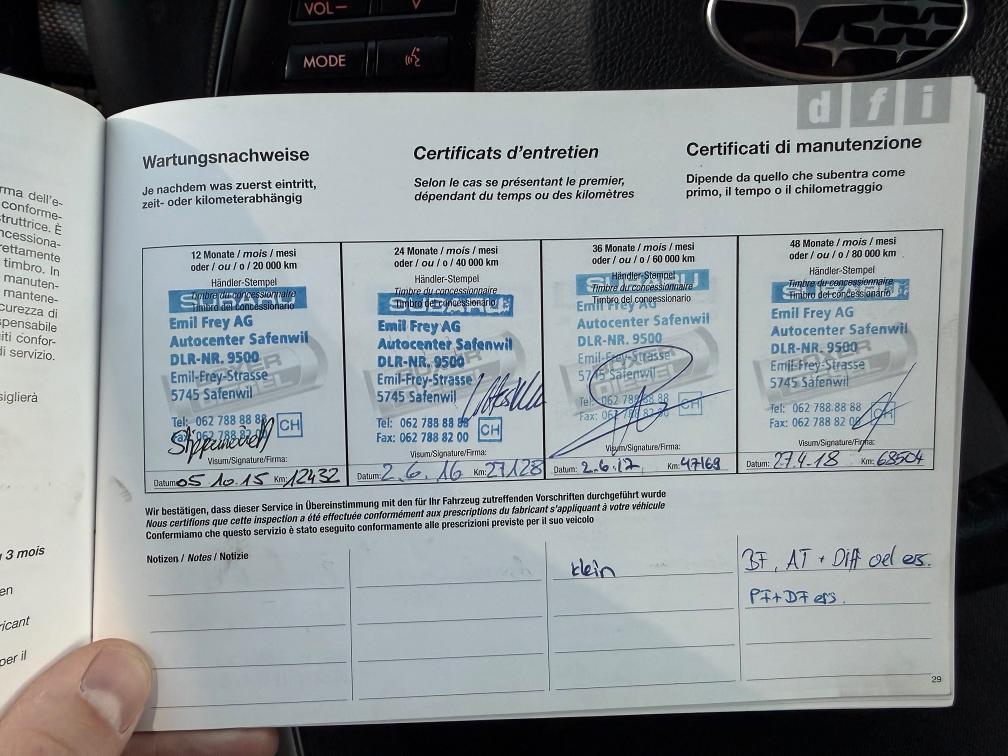 VOL–
MODE
d f i
rma dell'e-
conforme-
struttrice. È
ncessiona-
rettamente
timbro. In
manuten-
mantene-
curezza di
spensabile
iti confor-
di servizio.
siglierà
3 mois
en
ricant
per il
Wartungsnachweise
Je nachdem was zuerst eintritt,
zeit- oder kilometerabhängig
Certificats d'entretien
Selon le cas se présentant le premier,
dépendant du temps ou des kilomètres
Certificati di manutenzione
Dipende da quello che subentra come
primo, il tempo o il chilometraggio
12 Monate / mois / mesi
oder / ou / o / 20 000 km
Händler-Stempel
Timbre du concessionnaire
Timbro del concessionario
SUBARU
Emil Frey AG
Autocenter Safenwil
DLR-NR. 9500
Emil-Frey-Strasse
5745 Safenwil
Tel: 062 788 88 88
Fax: 062 788 82 00
CH
Visum/Signature/Firma:
Datum: 05 10.15 Km: 12432
24 Monate / mois / mesi
oder / ou / o / 40 000 km
Händler-Stempel
Timbre du concessionnaire
Timbro del concessionario
SUBARU
Emil Frey AG
Autocenter Safenwil
DLR-NR. 9500
Emil-Frey-Strasse
5745 Safenwil
Tel: 062 788 88 88
Fax: 062 788 82 00
CH
Visum/Signature/Firma:
Datum: 2.6.16 Km: 27128
36 Monate / mois / mesi
oder / ou / o / 60 000 km
Händler-Stempel
Timbre du concessionnaire
Timbro del concessionario
SUBARU
Emil Frey AG
Autocenter Safenwil
DLR-NR. 9500
Emil-Frey-Strasse
5745 Safenwil
Tel: 062 788 88 88
Fax: 062 788 82 00
CH
Visum/Signature/Firma:
Datum: 2.6.17 Km: 47169
48 Monate / mois / mesi
oder / ou / o / 80 000 km
Händler-Stempel
Timbre du concessionnaire
Timbro del concessionario
SUBARU
Emil Frey AG
Autocenter Safenwil
DLR-NR. 9500
Emil-Frey-Strasse
5745 Safenwil
Tel: 062 788 88 88
Fax: 062 788 82 00
CH
Visum/Signature/Firma:
Datum: 27.4.18 Km: 68504
Wir bestätigen, dass dieser Service in Übereinstimmung mit den für Ihr Fahrzeug zutreffenden Vorschriften durchgeführt wurde
Nous certifions que cette inspection a été effectuée conformément aux prescriptions du fabricant s'appliquant à votre véhicule
Confermiamo che questo servizio è stato eseguito conformamente alle prescrizioni previste per il suo veicolo
Notizen / Notes / Notizie
klein
BF, AT + Diff oel ers.
PF+DF ers.
29